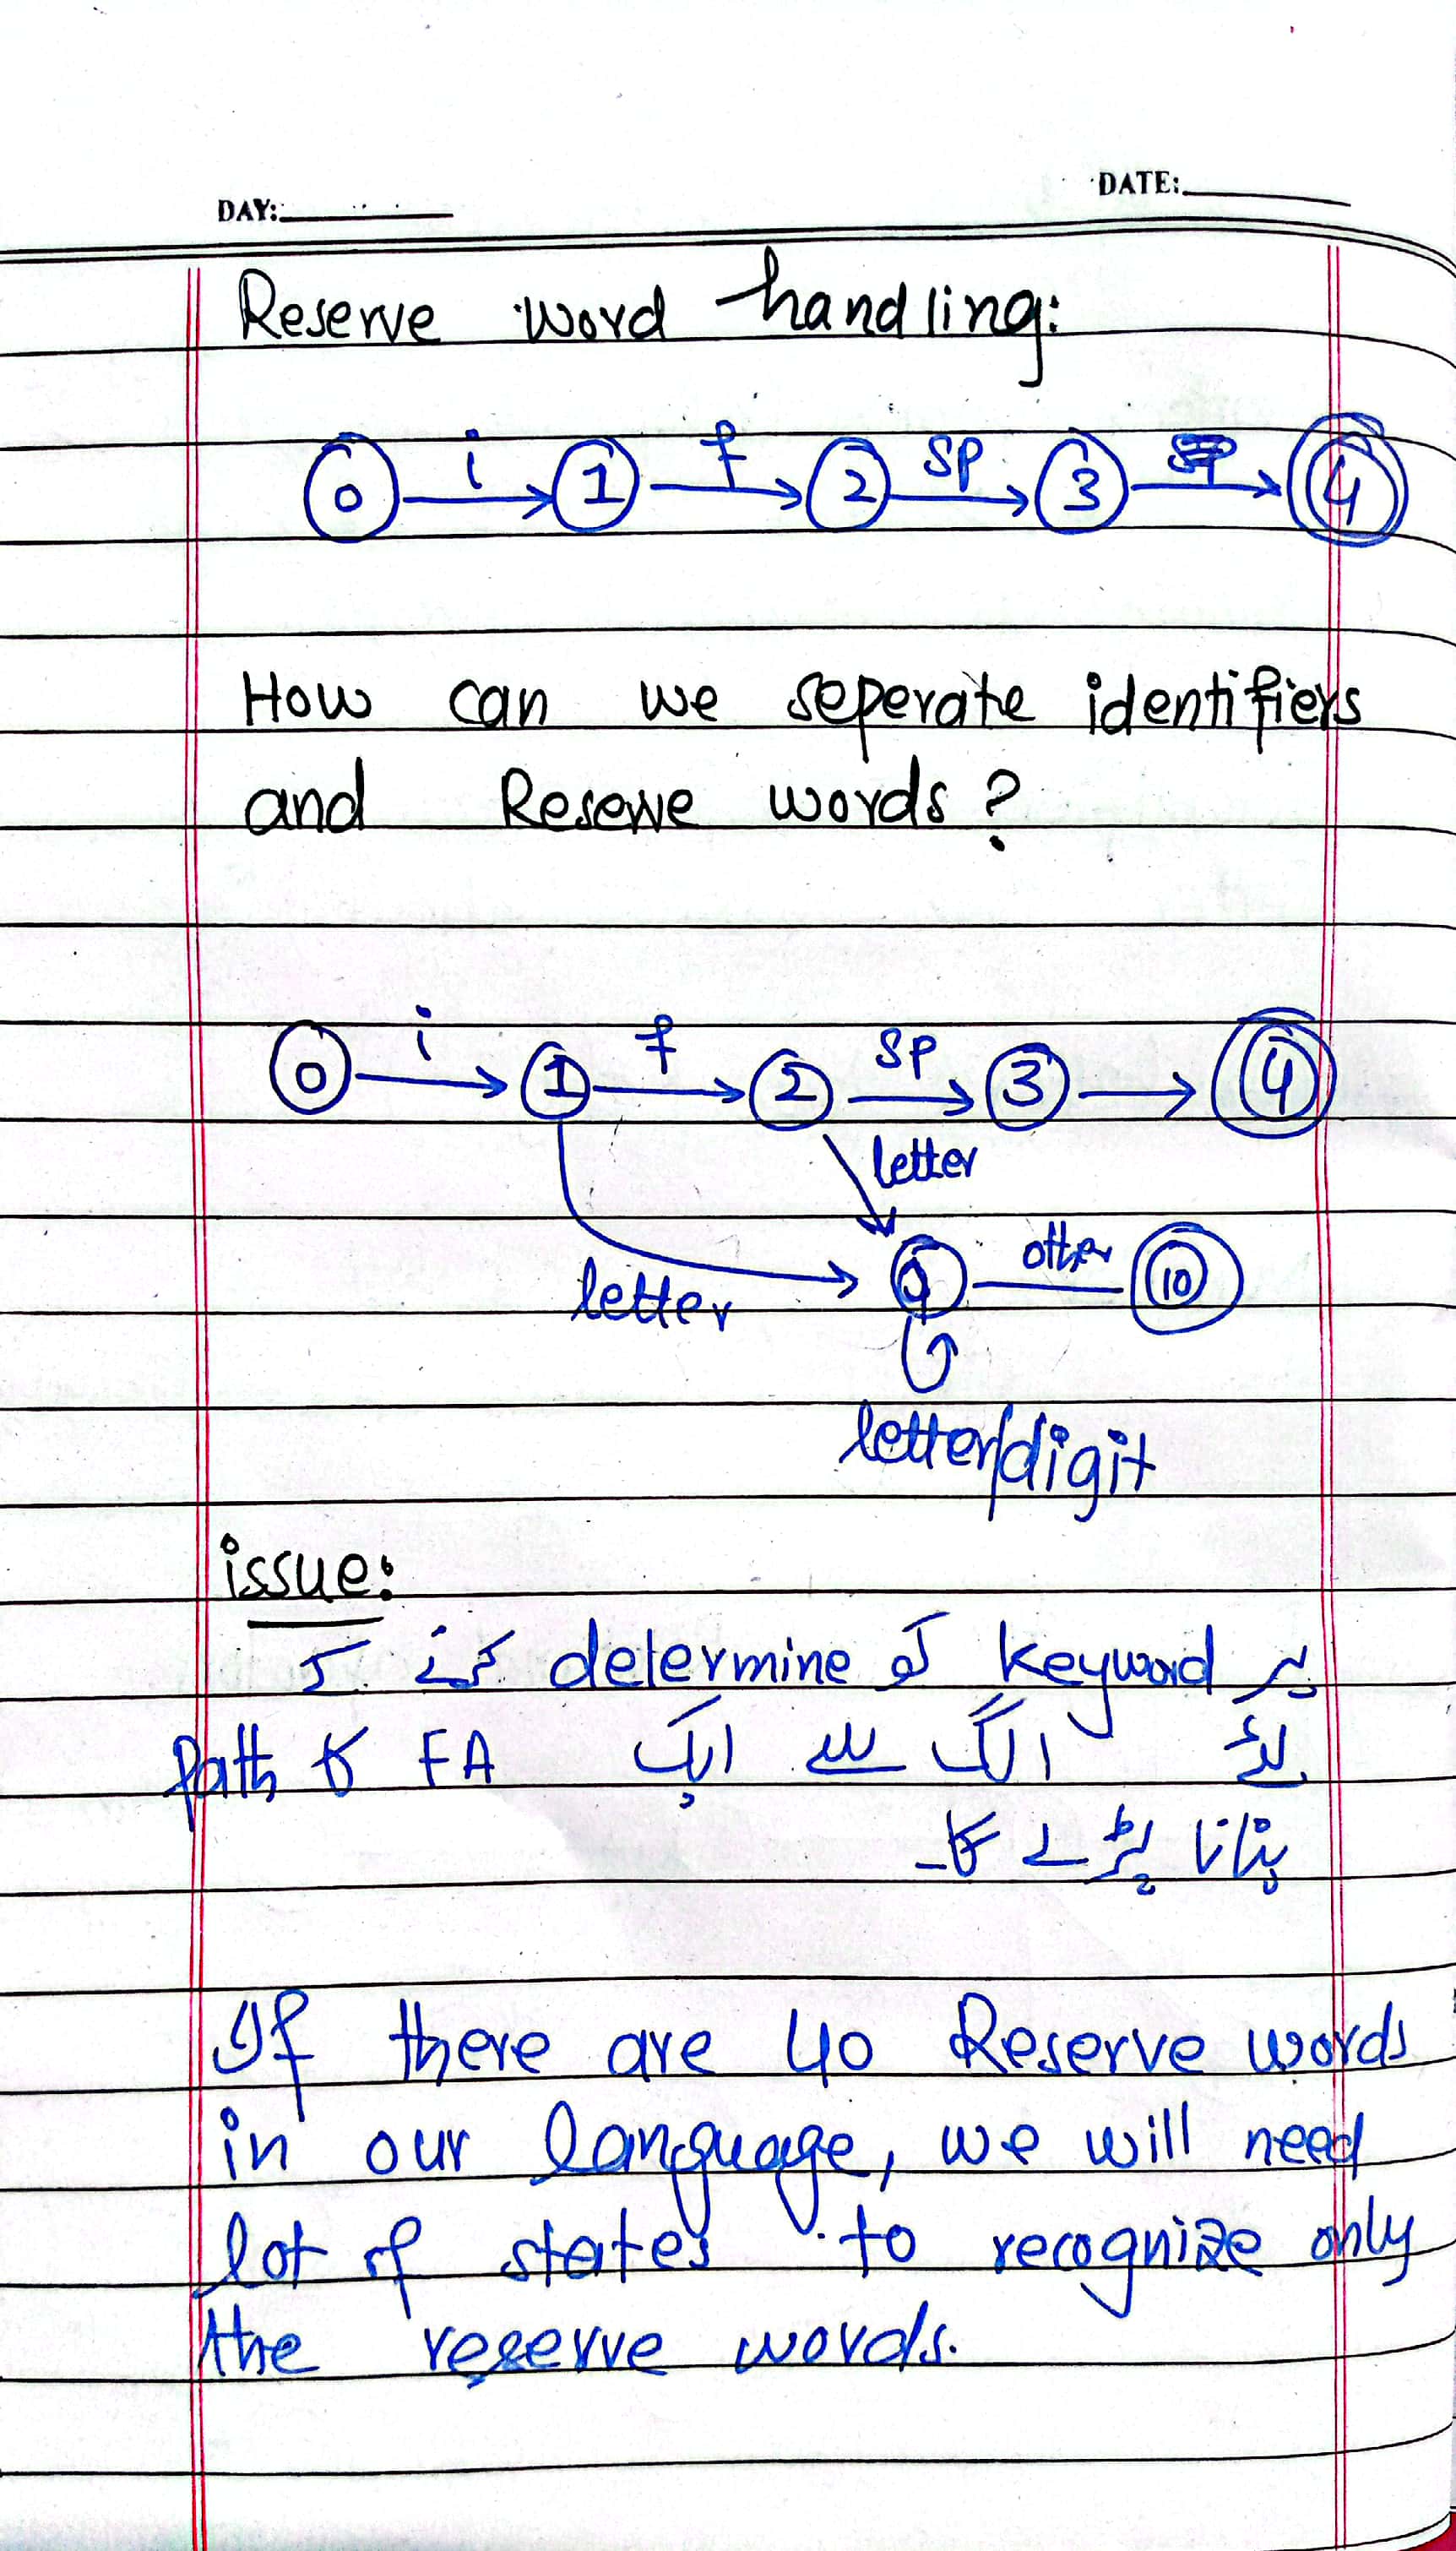 DAY:
DATE:
Reserve word handling:
0 i 1 f 2 sp 3 4
How can we seperate identifiers
and Reserve words?
0 i 1 f 2 sp 3 4
letter
letter 9 other 10
letter/digit
issue:
ہر keyword کو determine کرنے کے
لئے الگ سے ایک FA کا path
بنانا پڑے گا۔
If there are 40 Reserve words
in our language, we will need
lot of states to recognize only
the reserve words.